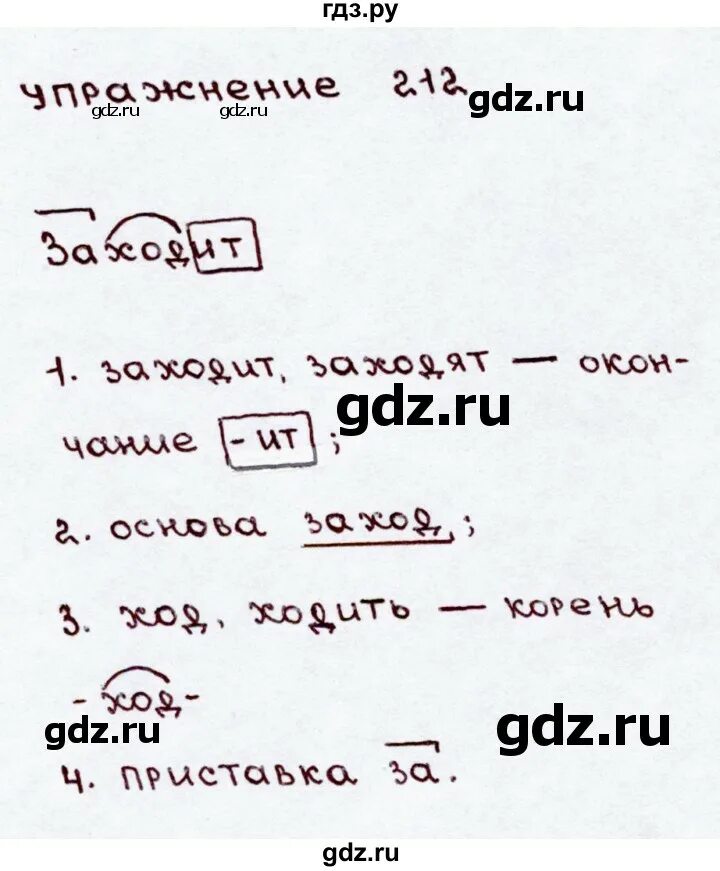 гдз.ру
упражнение 212
gdz.ru
gdz.ru gdz.ru
заходит
1. заходит, заходят — окон-
gdz.ru
чание -ит ;
2. основа заход;
3. ход, ходить — корень
-ход-
gdz.ru gdz.ru
4. приставка за.
gdz.ru